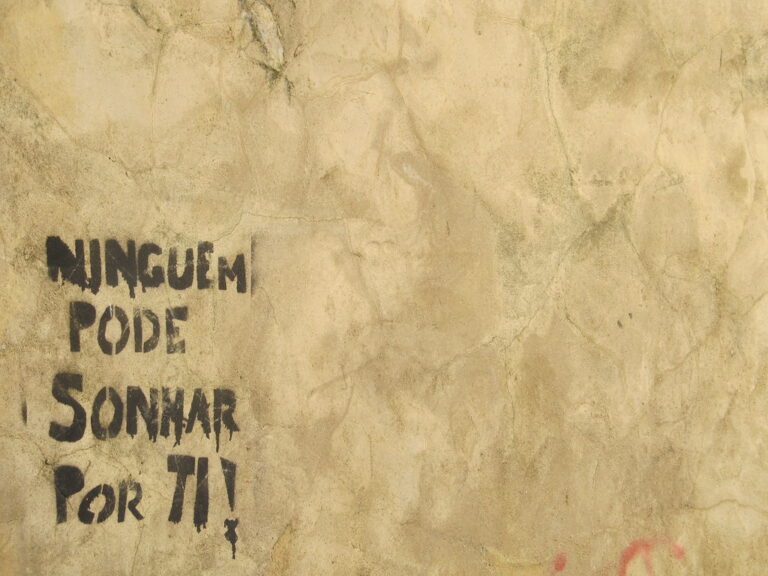 NINGUEM
PODE
SONHAR
POR TI!